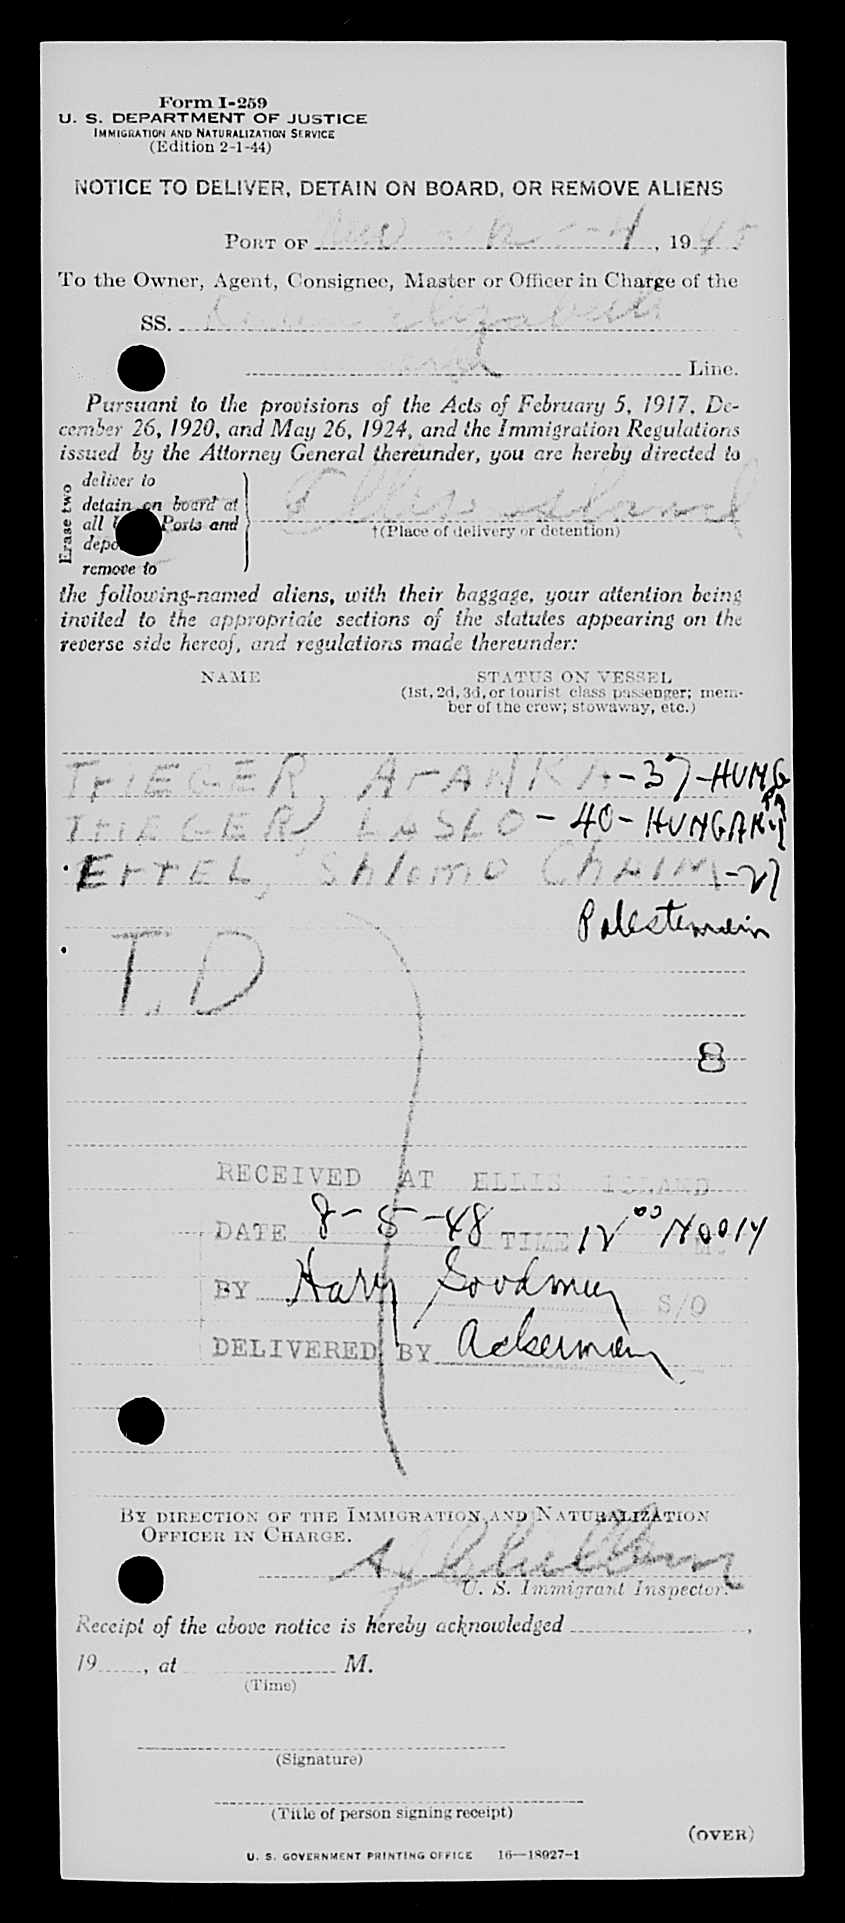 Form I-259
U. S. DEPARTMENT OF JUSTICE
IMMIGRATION AND NATURALIZATION SERVICE
(Edition 2-1-44)
NOTICE TO DELIVER, DETAIN ON BOARD, OR REMOVE ALIENS
PORT OF 4, 19 48
To the Owner, Agent, Consignee, Master or Officer in Charge of the
SS. Elizabeth
Line.
Pursuant to the provisions of the Acts of February 5, 1917, De-
cember 26, 1920, and May 26, 1924, and the Immigration Regulations
issued by the Attorney General thereunder, you are hereby directed to
Erase two
deliver to
detain on board at
all Ports and
remove to
Ellis Island
†(Place of delivery or detention)
the following-named aliens, with their baggage, your attention being
invited to the appropriate sections of the statutes appearing on the
reverse side hereof, and regulations made thereunder:
NAME STATUS ON VESSEL
(1st, 2d, 3d, or tourist class passenger; mem-
ber of the crew; stowaway, etc.)
TRIEGER, ARANKA - 37 - HUNG
TRIEGER, LASLO - 40 - HUNGARY
ERTEL, Shlomo CHAIM - 27
T.D
8
RECEIVED AT ELLIS ISLAND
DATE 8-5-48 TIME 12 00 NOON M.
BY Harry Goodman S/O
DELIVERED BY Ackerman
BY DIRECTION OF THE IMMIGRATION AND NATURALIZATION
OFFICER IN CHARGE.
U. S. Immigrant Inspector.
Receipt of the above notice is hereby acknowledged ,
19 , at M.
(Time)
(Signature)
(Title of person signing receipt)
(OVER)
U. S. GOVERNMENT PRINTING OFFICE 16—18927-1